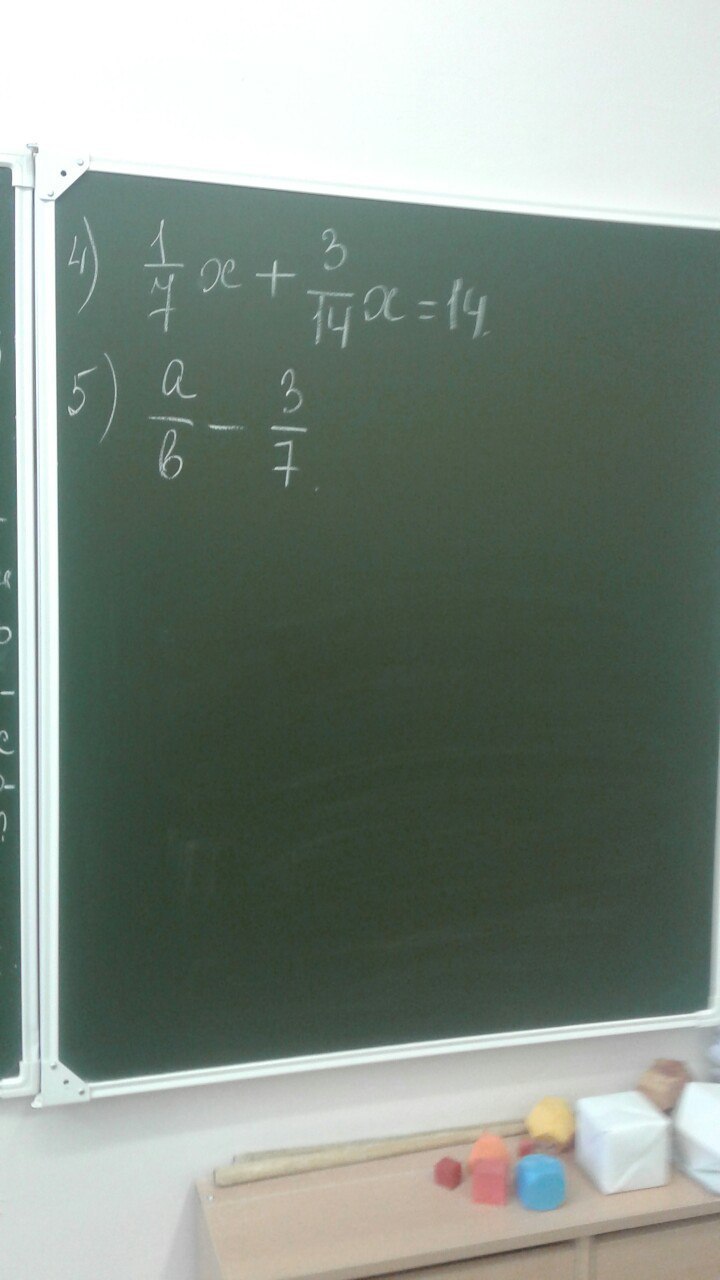 4) 1/7 x + 3/14 x = 14
5) a/b - 3/7